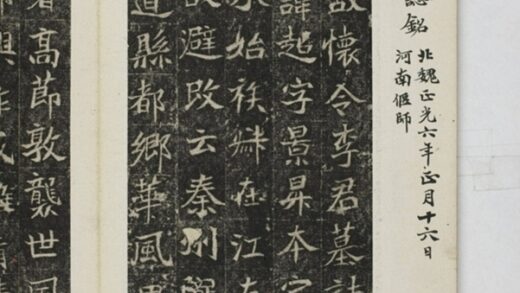 銘
北魏正光六年正月十六日
河南偃師
故懷令李君墓誌
諱起字景昇本字
始族 在江
避改云秦州
道縣都鄉華風
高節敦襲世